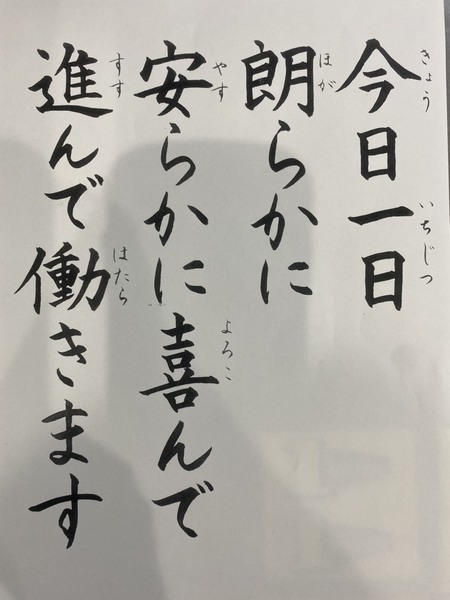 今日一日
きょう いちじつ
朗らかに
ほが
安らかに喜んで
やす よろこ
進んで働きます
すす はたら